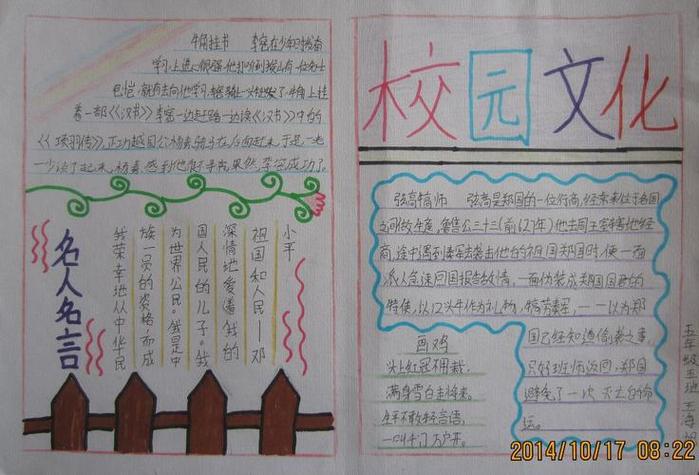 牛角挂书 李密在少年时发奋
学习上进
包恺,就前去向他学习,
着一部《汉书》李密一边赶路一边读《汉书》中的
《项羽传》,正巧越国公杨素骑马在后面赶来,于是一
成功了。
名人名言
我荣幸地从中华民
族一员的资格,而成
为世界公民。我是中
国人民的儿子。我
深情地爱着我的
祖国和人民——邓
小平
校园文化
弦高犒师 弦高是郑国的一位行商,经常来往于各国
之间做生意,鲁僖公三十三(前627)年他去周王室辖地经
商,途中遇到秦军去袭击他的祖国郑国时,便一面
派人急速回国报告敌情,一面伪装成郑国国君的
特使,以12头牛作为礼物,犒劳秦军,——以为郑
国已经知道偷袭之事,
只好班师返回,郑国
避免了一次灭亡的命
运。
画鸡
头上红冠不用裁,
满身雪白走将来。
生平不敢轻言语,
一叫千门万户开。
五年级五班
2014/10/17 08:22